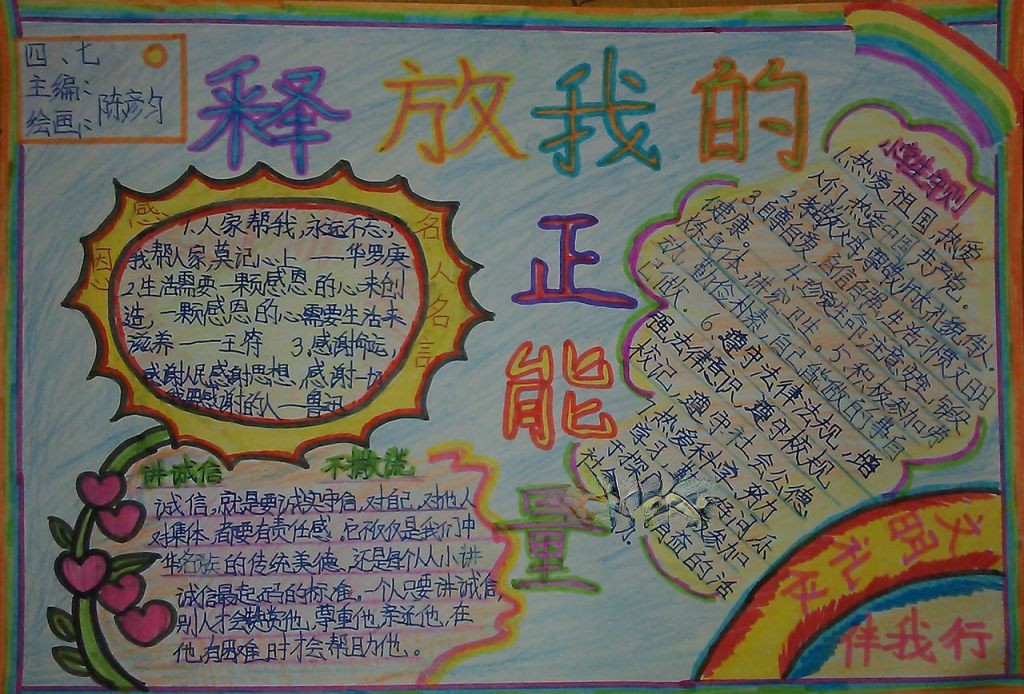 四、七
主编:
绘画:
陈彦匀
释放我的
正
能
量
感恩
名人名言
1.人家帮我,永远不忘;
我帮人家,莫记心上 ——华罗庚
2.生活需要一颗感恩的心来创
造,一颗感恩的心需要生活来
滋养 ——王符 3.感谢命运,
感谢人民感谢思想,感谢一切
我要感谢的人—鲁迅
讲诚信 不撒谎
诚信,就是要诚实守信,对自己,对他人
对集体,都要有责任感。它不仅仅是我们中
华名族的传统美德,还是每个人小讲
诚信最起码的标准。一个人只要讲诚信,
别人才会赞赏他,尊重他,亲近他,在
他有困难时才会帮助他。
小学生守则
1.热爱祖国,热爱
人们,热爱中国共产党。
2.孝敬父母,尊敬师长,礼貌待人。
3.自尊自爱,自信自强,生活习惯文明
健康。 4.珍爱生命,注意安全,锻
炼身体,讲究卫生。5.积极参加劳
动,勤俭朴素,自己能做的事自
己做。6.遵守法律法规,增
强法律意识,遵守校规
校记,遵守社会公德
7.热爱科学,努力
学习,勤
思好问,乐
于探
参加
有益的活
文明礼仪
伴我行